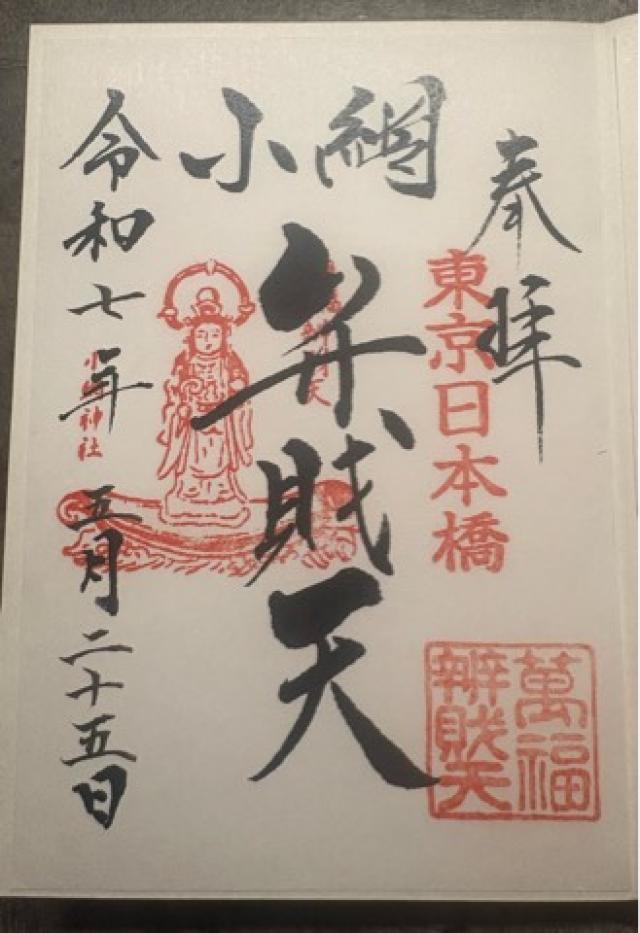 奉拝
東京日本橋
萬福
辨財天
小網
弁財天
小網神社
令和七年五月二十五日